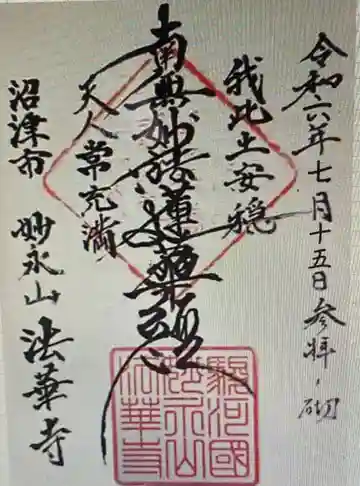 令和六年七月十五日参拝ノ砌
我此土安穏
南無妙法蓮華経
天人常充満
沼津市 妙永山 法華寺
駿河國
妙永山
法華寺